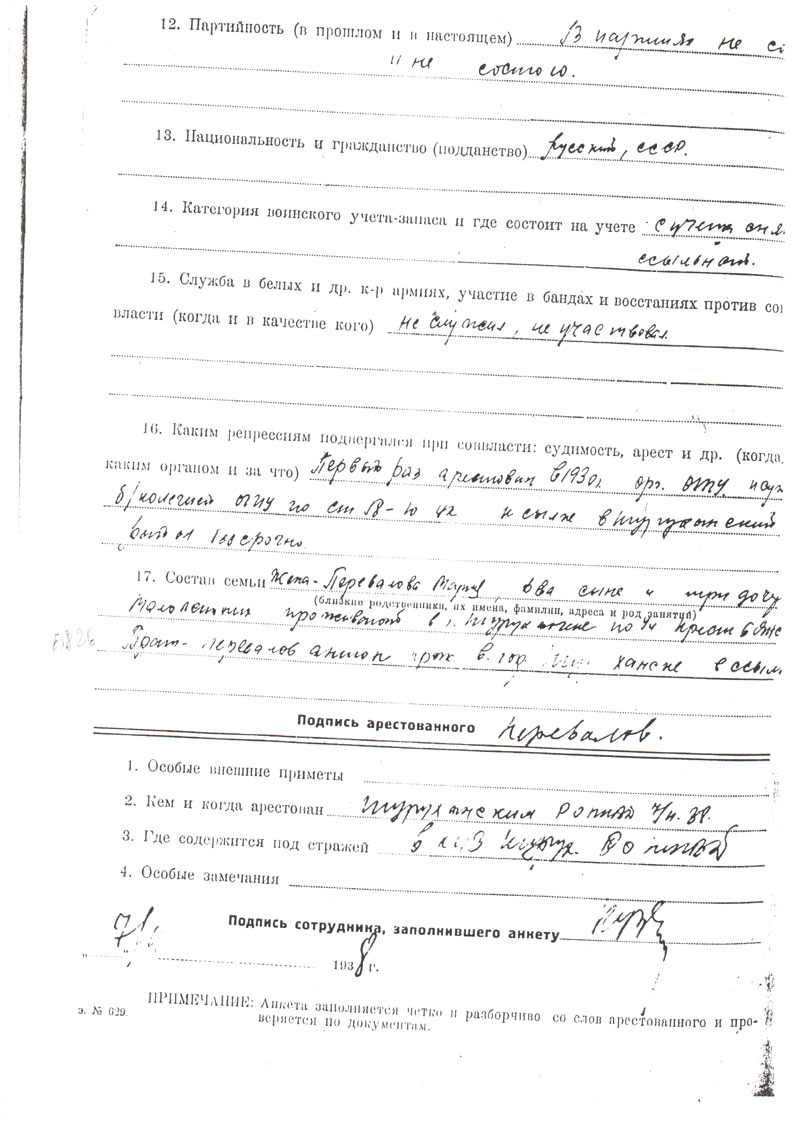 12. Партийность (в прошлом и в настоящем) В партиях не со
и не состою.
13. Национальность и гражданство (подданство) русский, СССР.
14. Категория воинского учета-запаса и где состоит на учете с учета сня
ссыльный.
15. Служба в белых и др. к-р армиях, участие в бандах и восстаниях против сов
власти (когда и в качестве кого) не служил, не участвовал
16. Каким репрессиям подвергался при соввласти: судимость, арест и др. (когда,
каким органом и за что) Первый раз арестован в 1930г. орг. ОГПУ
ОГПУ по ст 58-10 УК к ссылке в Туруханский
17. Состав семьи Жена-Перевалова два сына и три доч
(близкие родственники, их имена, фамилии, адреса и род занятий)
малолетних проживают в
Брат-Перевалов в ссыл
Подпись арестованного Перевалов.
1. Особые внешние приметы
2. Кем и когда арестован Туруханским
3. Где содержится под стражей в КПЗ
4. Особые замечания
Подпись сотрудника, заполнившего анкету
1938 г.
ПРИМЕЧАНИЕ: Анкета заполняется четко и разборчиво со слов арестованного и про-
э. № 629.
веряется по документам.